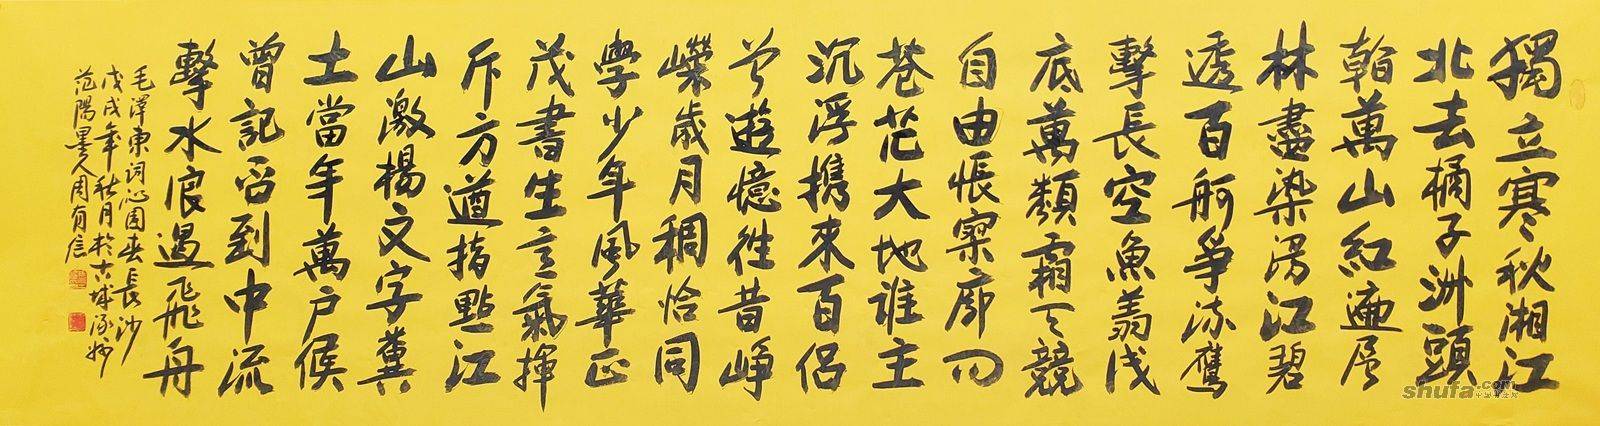 獨立寒秋湘江
北去橘子洲頭
看萬山紅遍层
林盡染漫江碧
透百舸爭流鷹
擊長空魚翔浅
底萬類霜天競
自由悵寥廓问
苍茫大地谁主
沉浮携來百侣
曾遊憶往昔峥
嶸歲月稠恰同
學少年風華正
茂書生意氣揮
斥方遒指點江
山激揚文字糞
土當年萬户侯
曾記否到中流
擊水浪遏飛舟
毛澤東词沁园春長沙
戊戌年秋月於古城涿州
范陽墨人周有信
shufa.com